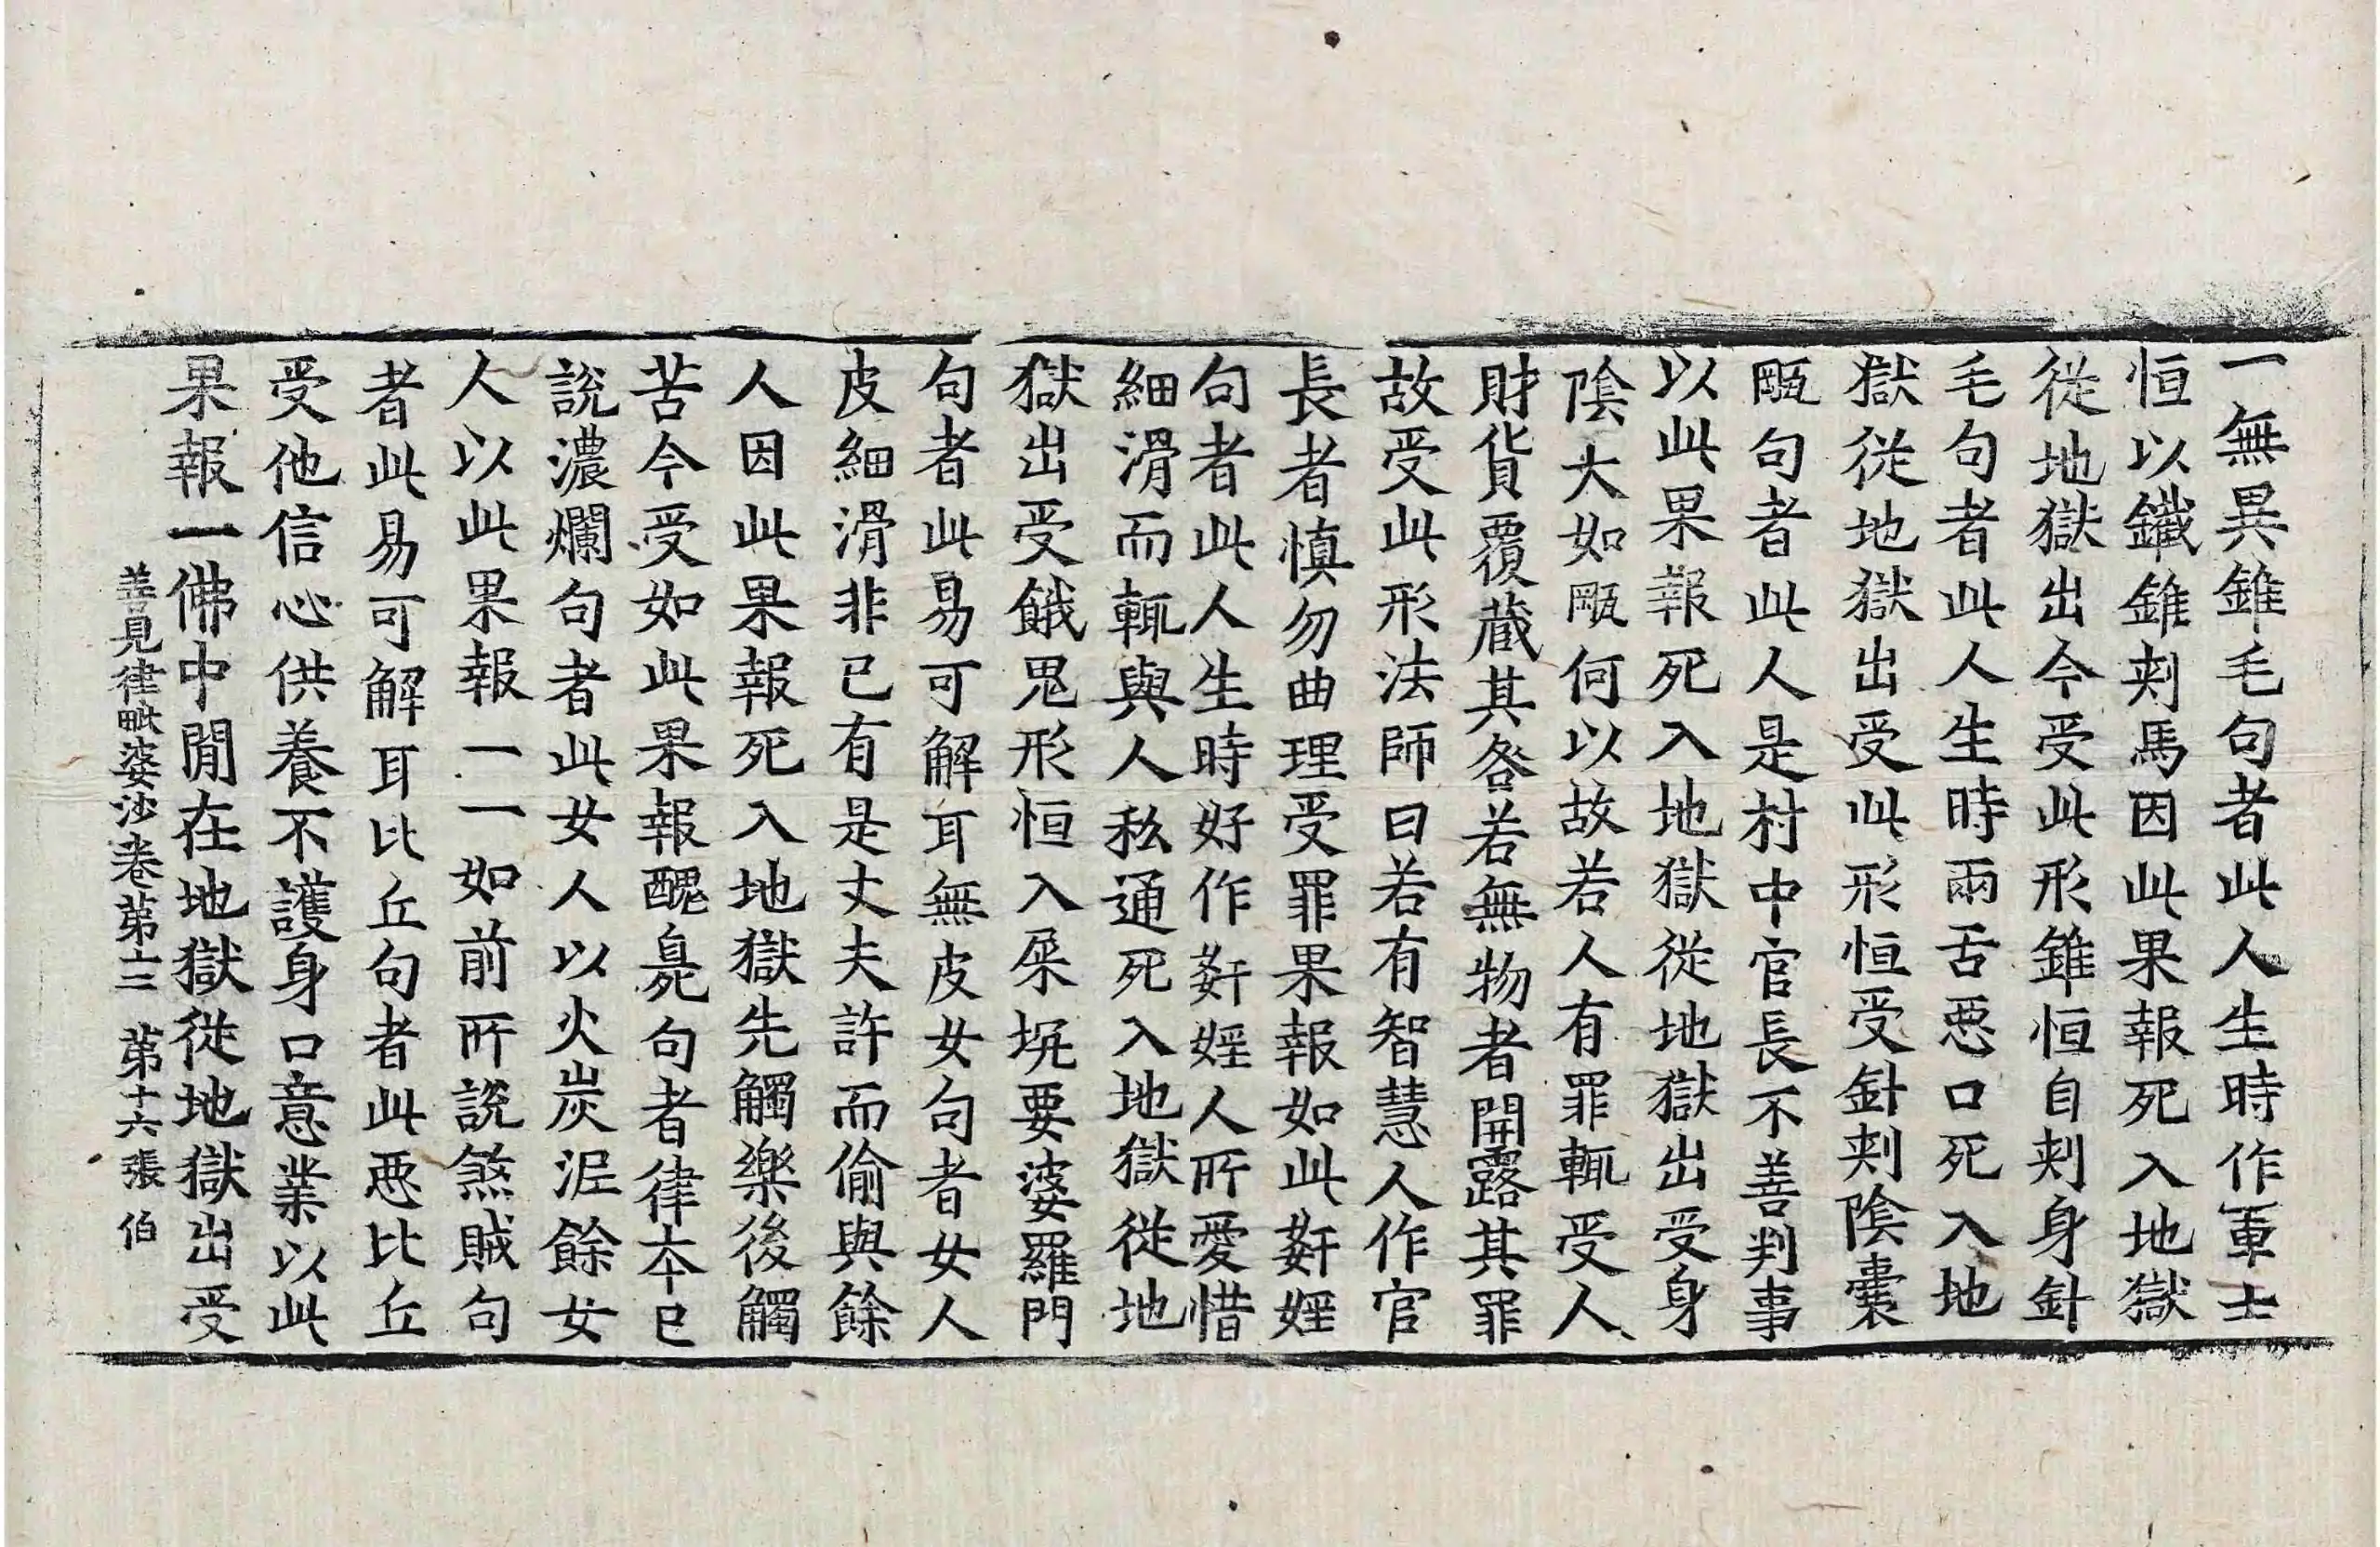 一無異錐毛句者此人生時作軍士
恒以鐵錐刾馬因此果報死入地獄
從地獄出今受此形錐恒自刾身針
毛句者此人生時兩舌惡口死入地
獄從地獄出受此形恒受針刾陰囊
𤬪句者此人是村中官長不善判事
以此果報死入地獄從地獄出受身
陰大如𤬪何以故若人有罪輒受人
財貨覆蔵其咎若無物者開露其罪
故受此形法師曰若有智慧人作官
長者慎勿曲理受罪果報如此姧婬
句者此人生時好作姧婬人所愛惜
細滑而輒與人私通死入地獄從地
獄出受餓鬼形恒入屎坑要婆羅門
句者此易可解耳無皮女句者女人
皮細滑非已有是丈夫許而偷與餘
人因此果報死入地獄先觸樂後觸
苦今受如此果報醜臭句者律夲已
說濃爛句者此女人以火炭泥餘女
人以此果報一一如前所說煞賊句
者此易可解耳比丘句者此惡比丘
受他信心供養不護身口意業以此
果報一佛中閒在地獄從地獄出受
善見律毗婆沙卷苐十二 苐十六張 伯